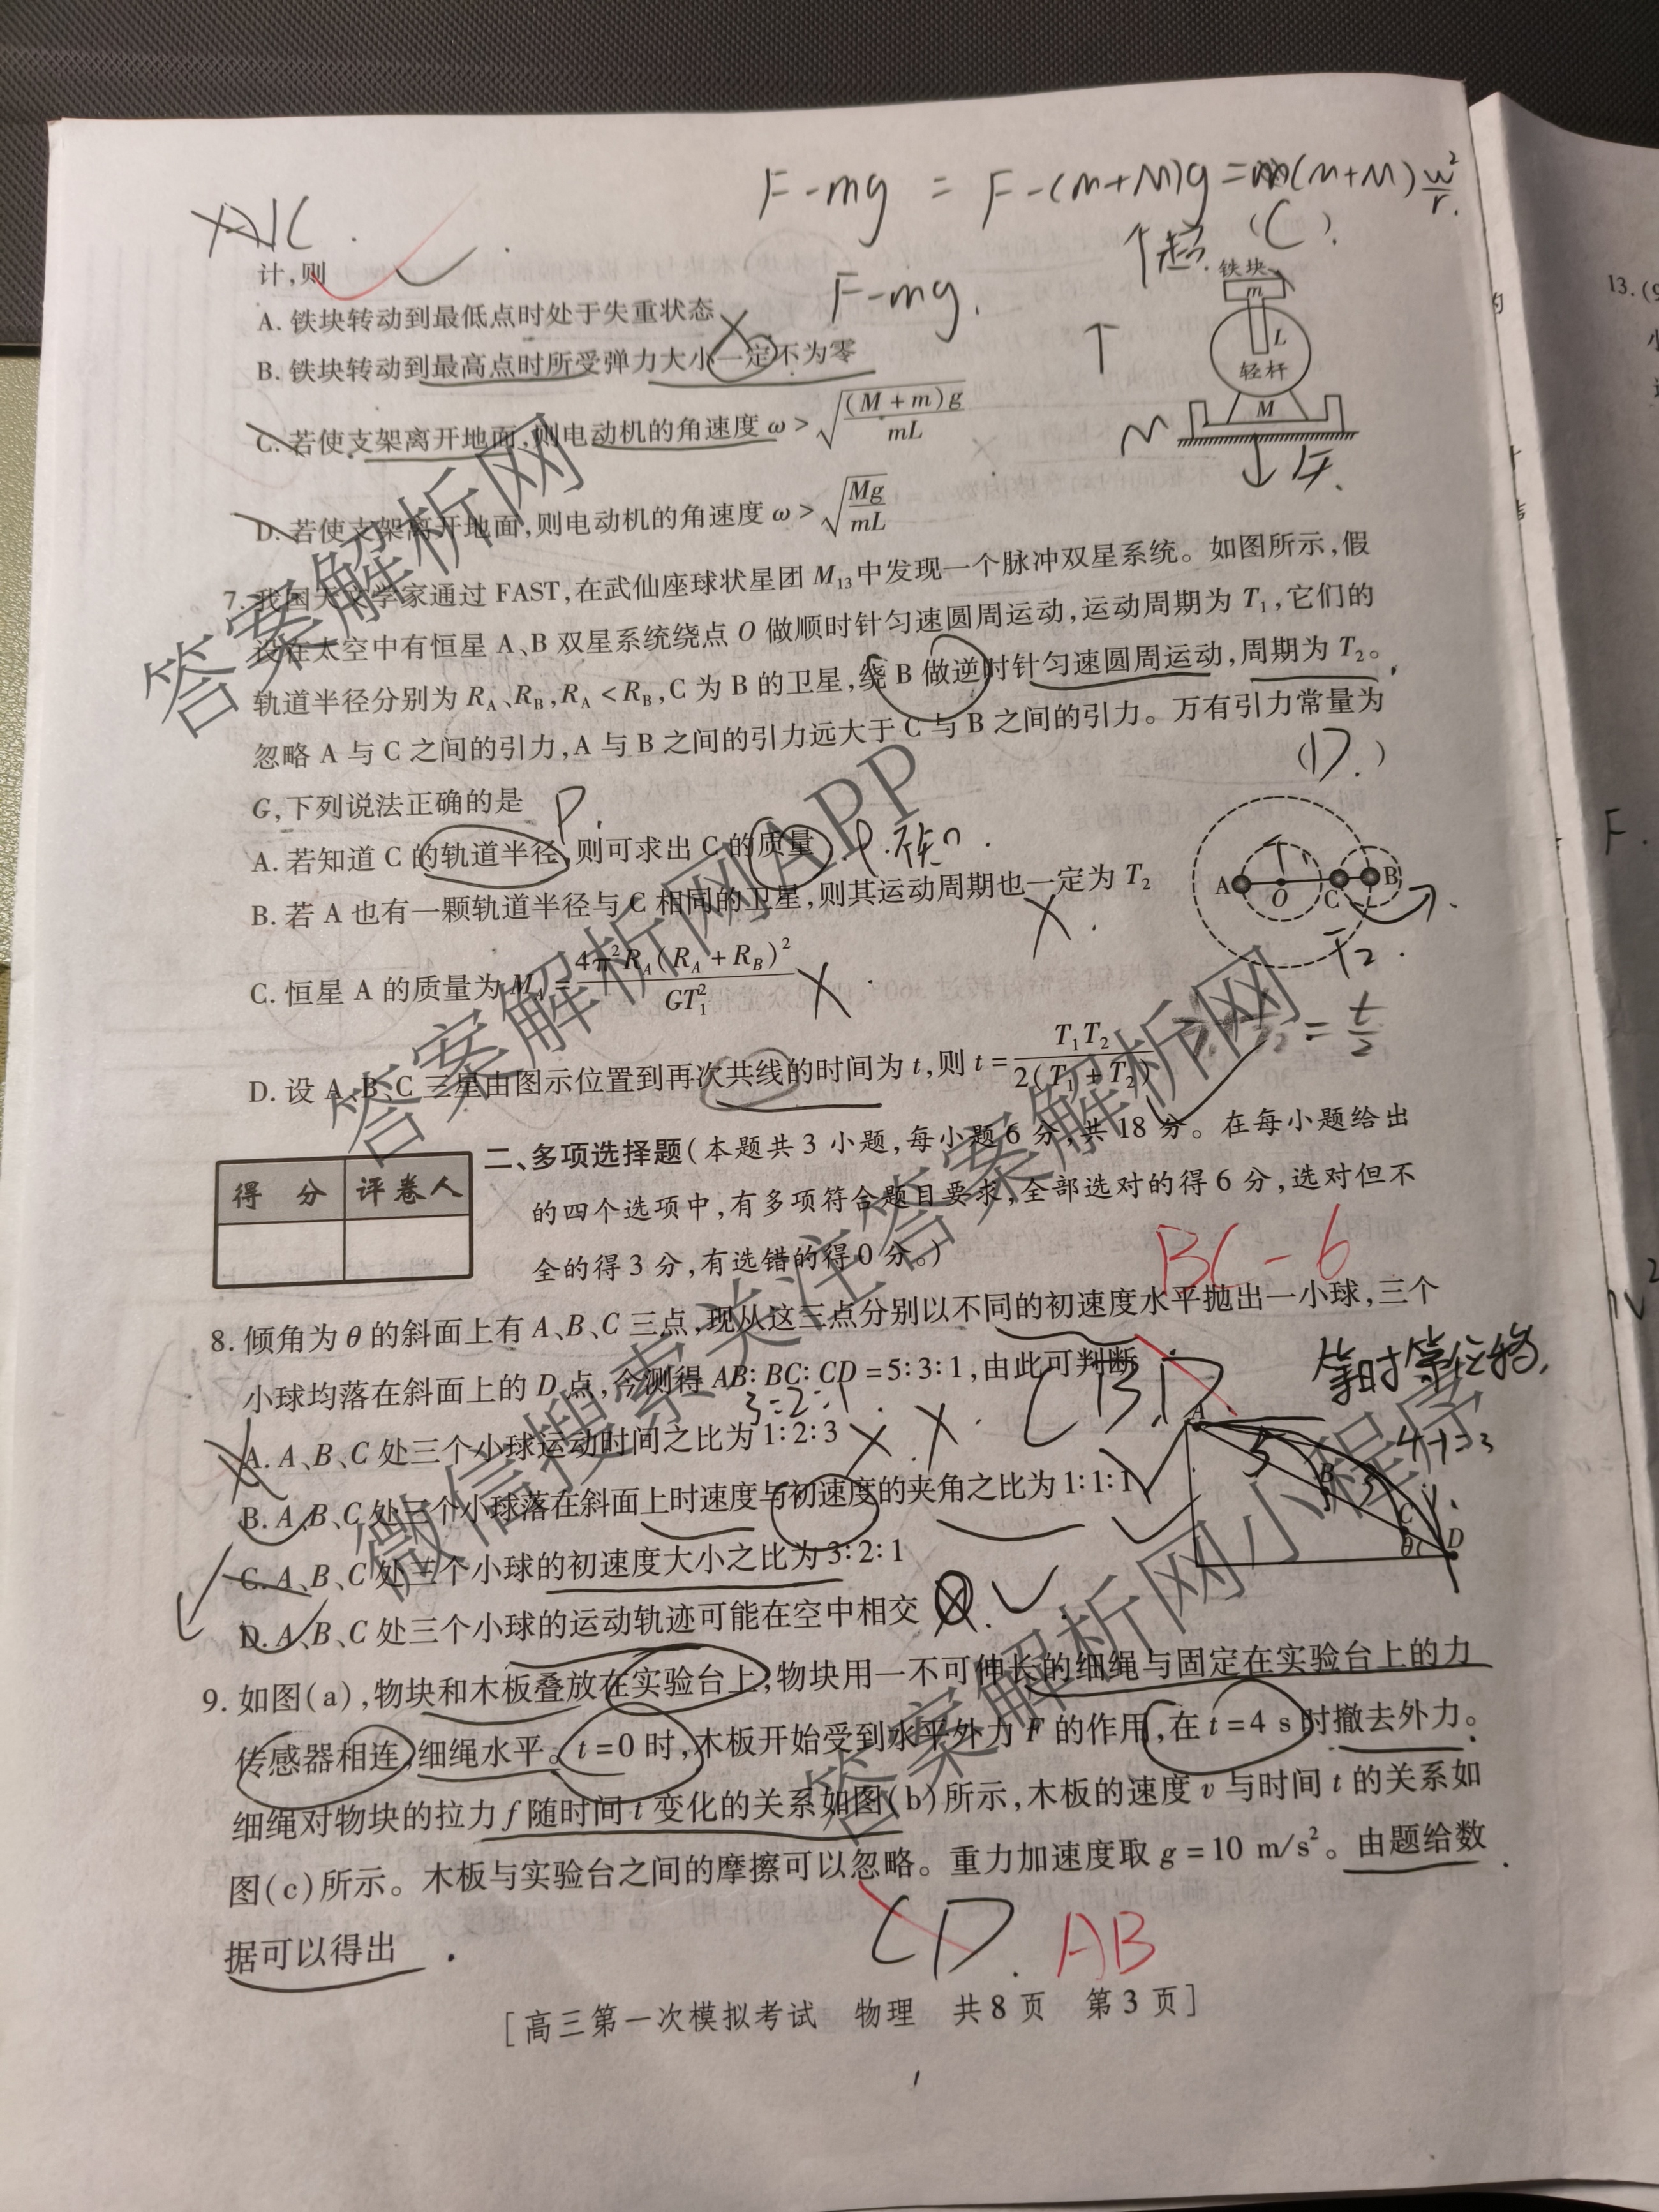 F-mg = F-(m+M)g=m(m+M)w²/r.
C
(C).
↑超.
计,则
F-mg.
铁块
m
L
轻杆
M
M
F.
A. 铁块转动到最低点时处于失重状态
B. 铁块转动到最高点时所受弹力大小一定不为零
C. 若使支架离开地面,则电动机的角速度 ω > √((M + m)g/mL)
D. 若使支架离开地面,则电动机的角速度 ω > √(Mg/mL)
7. 我国天文学家通过 FAST,在武仙座球状星团 M₁₃ 中发现一个脉冲双星系统。如图所示,假
设在太空中有恒星 A、B 双星系统绕点 O 做顺时针匀速圆周运动,运动周期为 T₁,它们的
轨道半径分别为 R_A、R_B,R_A < R_B,C 为 B 的卫星,绕 B 做逆时针匀速圆周运动,周期为 T₂。
忽略 A 与 C 之间的引力,A 与 B 之间的引力远大于 C 与 B 之间的引力。万有引力常量为
G,下列说法正确的是
(D.)
A. 若知道 C 的轨道半径,则可求出 C 的质量
B. 若 A 也有一颗轨道半径与 C 相同的卫星,则其运动周期也一定为 T₂
A O C B
T₁
T₂.
C. 恒星 A 的质量为 M_A = 4π²R_A(R_A + R_B)²/GT₁²
D. 设 A、B、C 三星由图示位置到再次共线的时间为 t,则 t = T₁T₂/2(T₁ + T₂)
得 分 评卷人
二、多项选择题(本题共 3 小题,每小题 6 分,共 18 分。在每小题给出
的四个选项中,有多项符合题目要求,全部选对的得 6 分,选对但不
全的得 3 分,有选错的得 0 分。)
BC-6
8. 倾角为 θ 的斜面上有 A、B、C 三点,现从这三点分别以不同的初速度水平抛出一小球,三个
小球均落在斜面上的 D 点,今测得 AB: BC: CD = 5: 3: 1,由此可判断
3:2:1
等时等位移,
A. A、B、C 处三个小球运动时间之比为 1: 2: 3
B. A、B、C 处三个小球落在斜面上时速度与初速度的夹角之比为 1: 1: 1
C. A、B、C 处三个小球的初速度大小之比为 3: 2: 1
D. A、B、C 处三个小球的运动轨迹可能在空中相交
A
5
B
3
C
θ
D
9. 如图(a),物块和木板叠放在实验台上,物块用一不可伸长的细绳与固定在实验台上的力
传感器相连,细绳水平。t = 0 时,木板开始受到水平外力 F 的作用,在 t = 4 s 时撤去外力。
细绳对物块的拉力 f 随时间 t 变化的关系如图(b)所示,木板的速度 v 与时间 t 的关系如
图(c)所示。木板与实验台之间的摩擦可以忽略。重力加速度取 g = 10 m/s²。由题给数
据可以得出
CD. AB
[高三第一次模拟考试 物理 共 8 页 第 3 页]
13.(9
F.
答案解析网
答案解析网APP
微信搜索关注答案解析网
答案解析网小程序